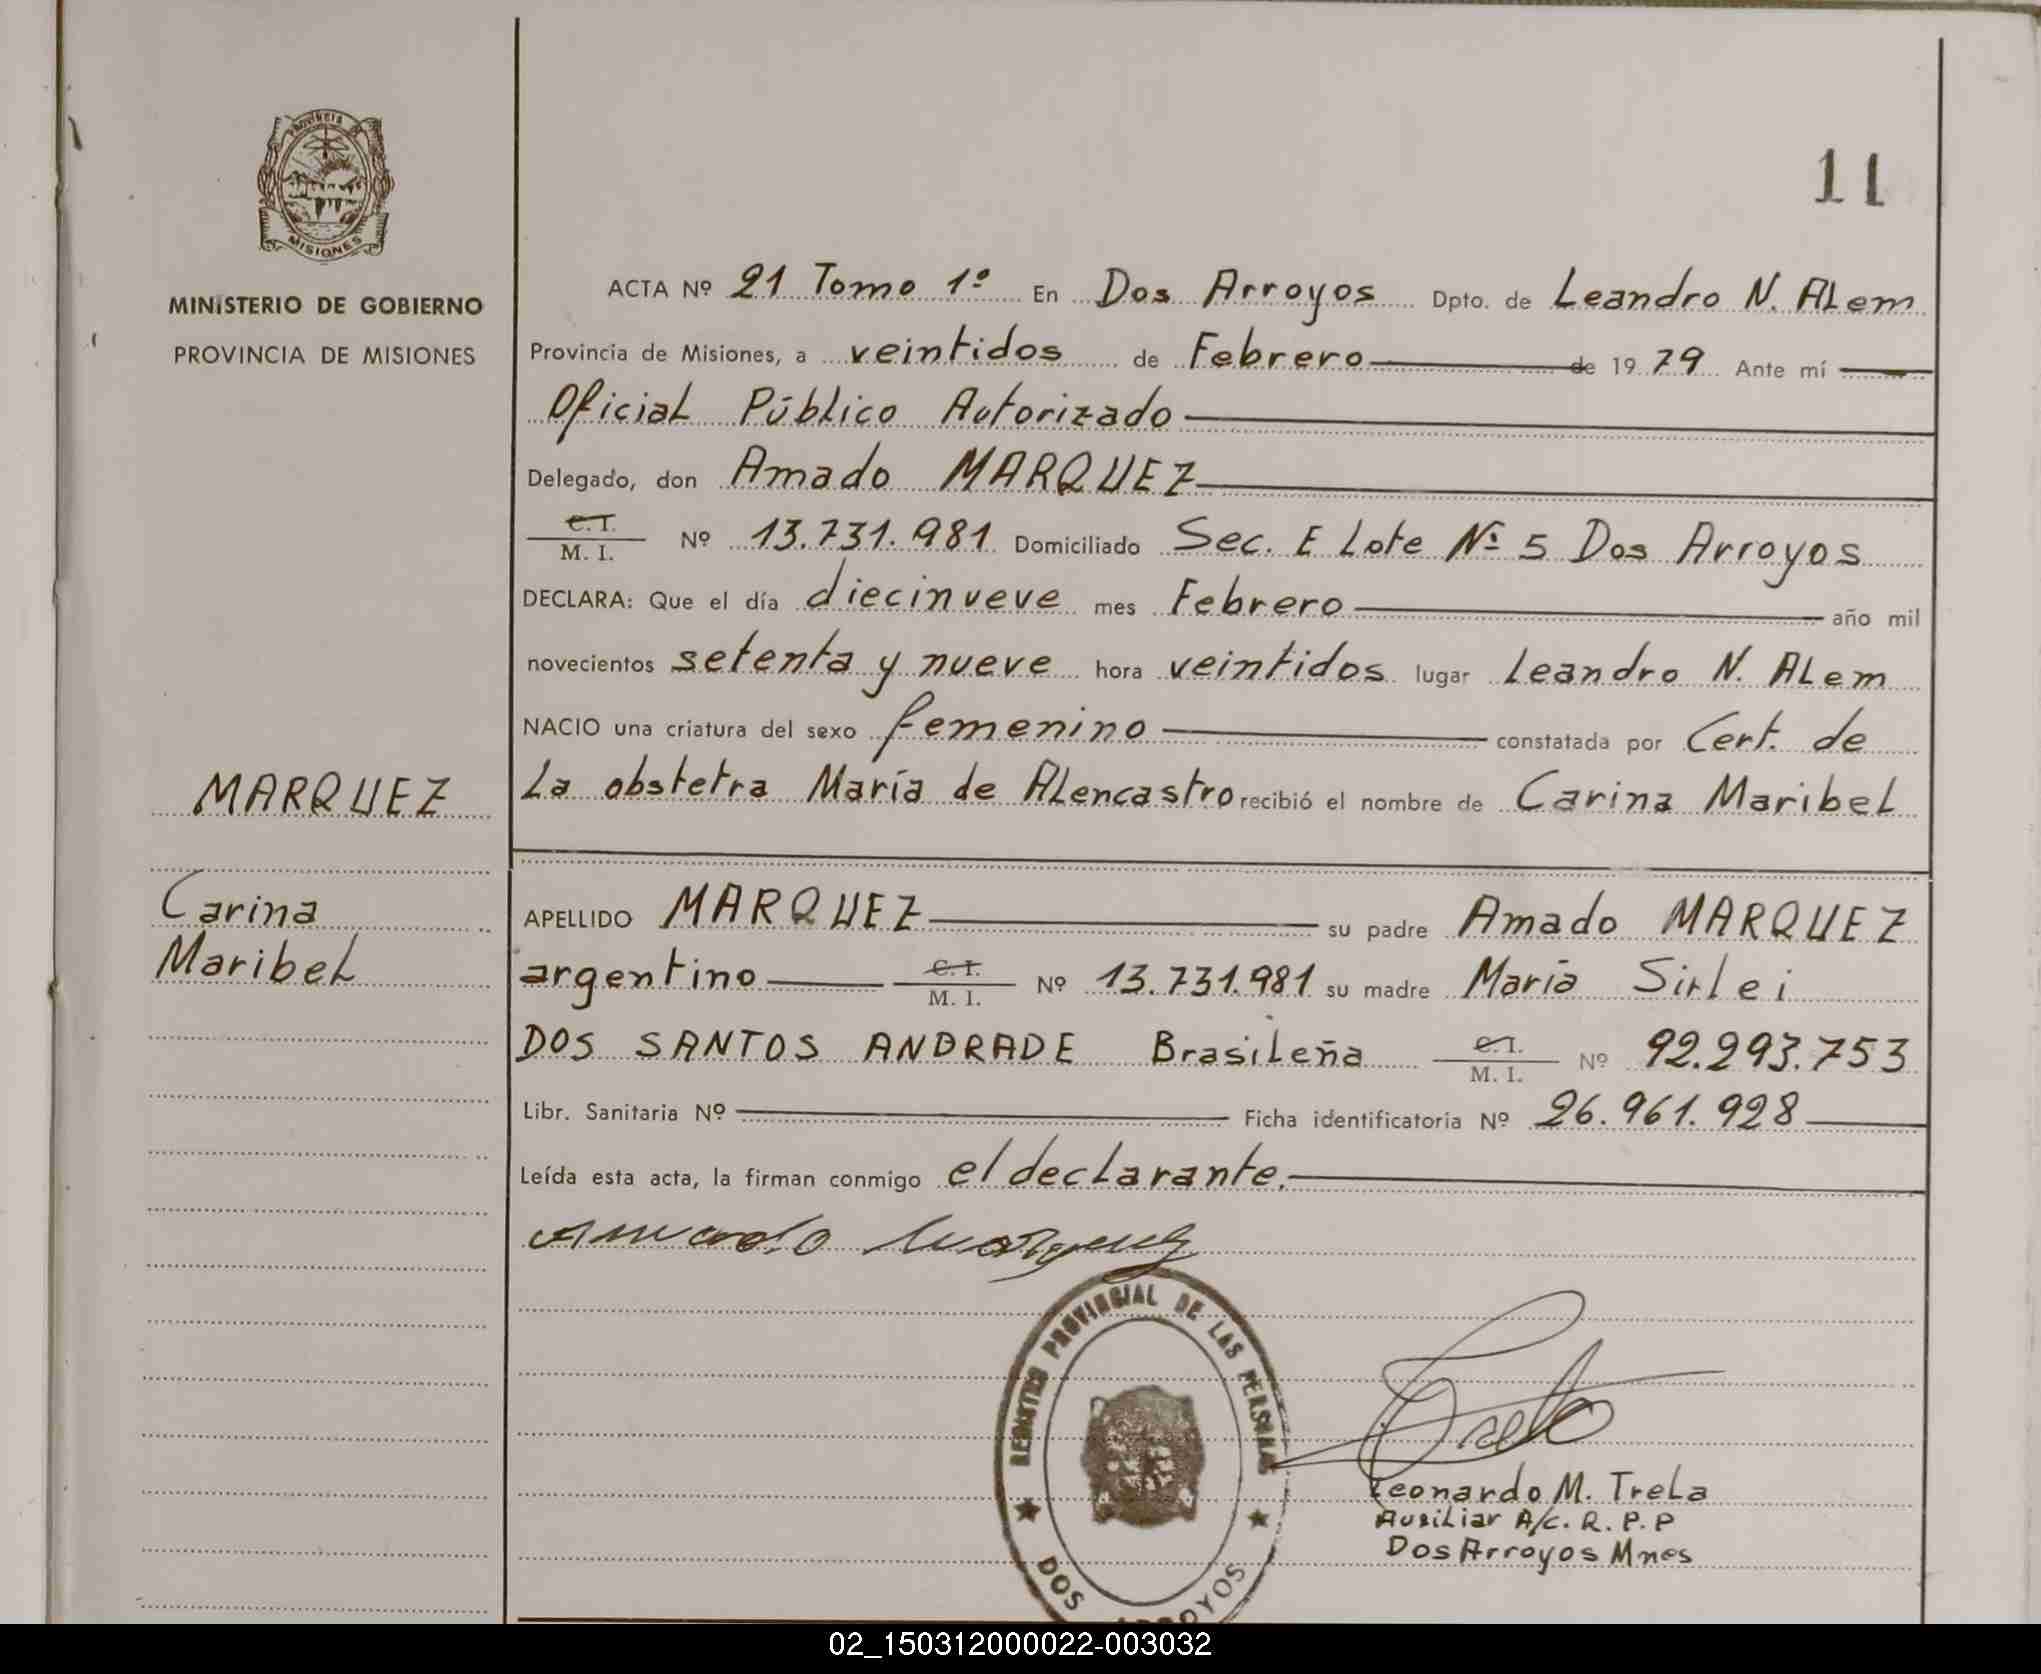 PROVINCIA DE
MISIONES
MINISTERIO DE GOBIERNO
PROVINCIA DE MISIONES
11
ACTA Nº 21 Tomo 1º En Dos Arroyos Dpto. de Leandro N. ALem
Provincia de Misiones, a veintidos de Febrero de 1979 Ante mí
Oficial Público Autorizado
Delegado, don Amado MARQUEZ
C.I.
M. I. Nº 13.731.981 Domiciliado Sec. E Lote Nº 5 Dos Arroyos
DECLARA: Que el día diecinueve mes Febrero año mil
novecientos setenta y nueve hora veintidos lugar Leandro N. ALem
NACIO una criatura del sexo femenino constatada por Cert. de
La obstetra María de ALencastro recibió el nombre de Carina Maribel
MARQUEZ
Carina
Maribel
APELLIDO MARQUEZ su padre Amado MARQUEZ
argentino C.I.
M. I. Nº 13.731.981 su madre María Sirlei
DOS SANTOS ANDRADE Brasileña C.I.
M. I. Nº 92.293.753
Libr. Sanitaria Nº Ficha identificatoria Nº 26.961.928
Leída esta acta, la firman conmigo el declarante.
Amado Marquez
REGISTRO PROVINCIAL DE LAS PERSONAS
DOS ARROYOS
Trela
Leonardo M. Trela
Auxiliar A/C. R. P. P
Dos Arroyos Mnes
02_150312000022-003032